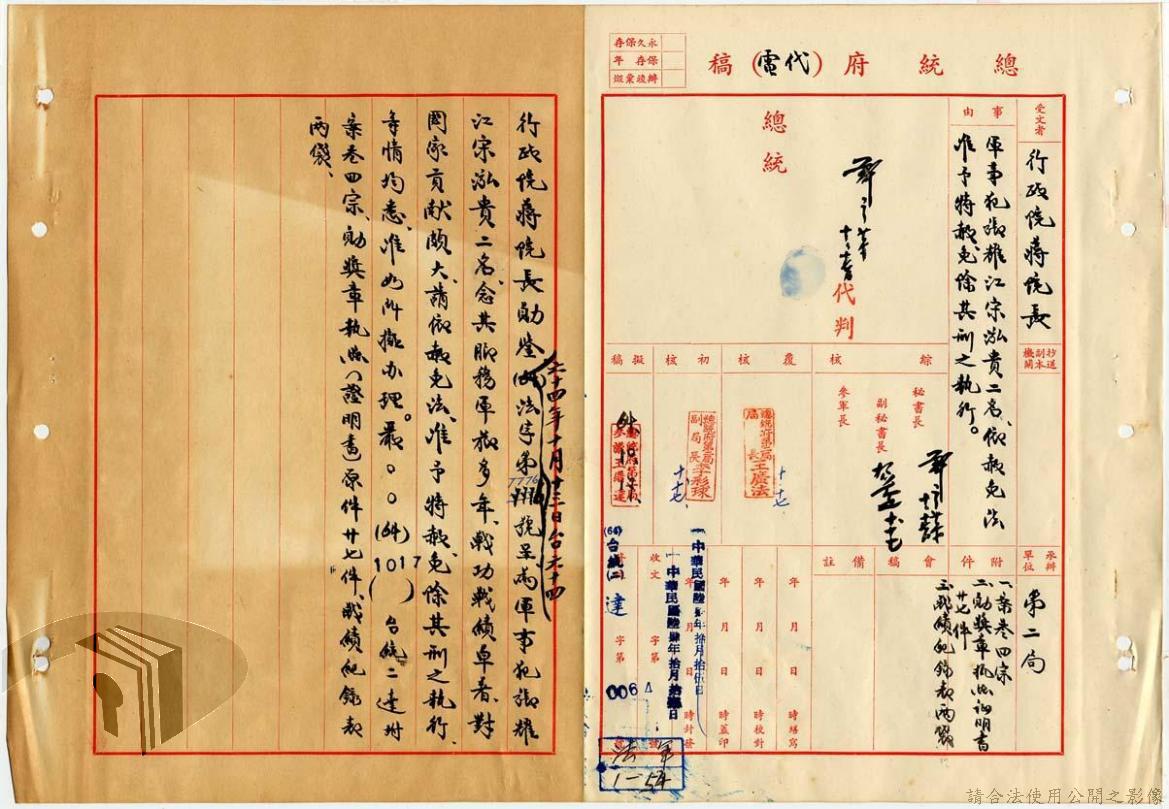 總統府(代電)稿
永久保存
保存年
辦後彙繳
受文者
行政院蔣院長
事由
軍事犯張雄江宗泓貴二名,依赦免法
准予特赦,免除其刑之執行。
總統
代判
抄送副本機關
綜核
秘書長
副秘書長
參軍長
覆核
總統府第二局局長王廣法
十七
初核
總統府第二局副局長李彩球
十七
擬稿
64.10.14.
承辦單位
第二局
附件
一、案卷四宗
二、勛獎章執照證明書
廿七件
三、戰績紀錄表兩袋
會稿
備註
年月日時繕寫
年月日時校對
年月日時蓋印
年月日時封發
中華民國陸肆年拾月拾伍日
中華民國陸肆年拾月拾 日
收文 字第 號
(64)台統(二)達 字第 006 號
法軍
1-54
行政院蔣院長勛鑒:
六十四年十月十三日台六十四
法字第7776號呈為軍事犯張雄
江宗泓貴二名,念其服務軍旅多年,戰功戰績卓著,對
國家貢獻頗大,請依赦免法,准予特赦,免除其刑之執行,
等情均悉。准如所擬辦理。最○○(64)1017( )台統二達附
案卷四宗、勛獎章執照(證明書)原件廿七件、戰績紀錄表
兩袋、
請合法使用公開之影像